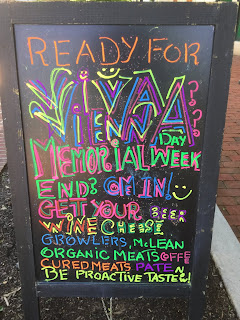 READY FOR
VIVA
VIENNA??
DAY
MEMORIAL WEEK
END? OM IN!
GET YOUR BEER
WINE CHEESE
GROWLERS, McLEAN
ORGANIC MEATS
CURED MEATS PATE
BE PROACTIVE TASTE!